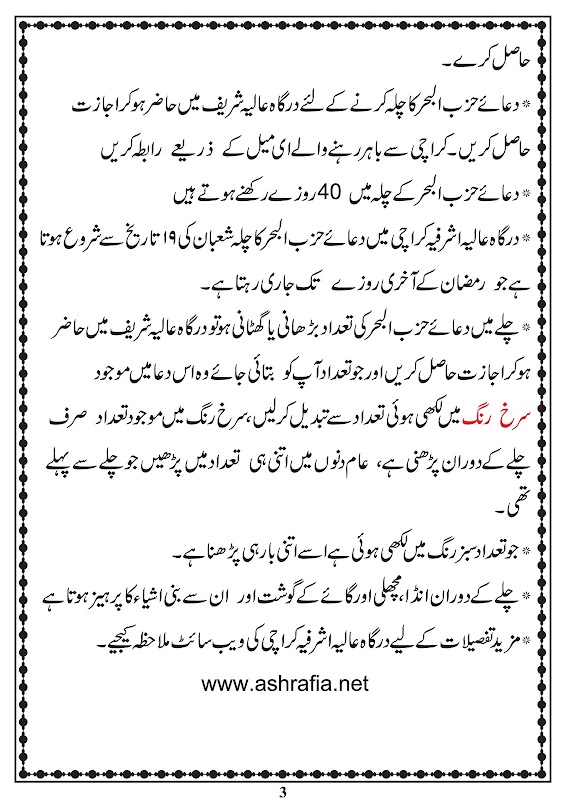 حاصل کرے۔
* دعائے حزب البحر کا چلہ کرنے کے لئے درگاہ عالیہ شریف میں حاضر ہو کر اجازت
حاصل کریں۔ کراچی سے باہر رہنے والے ای میل کے ذریعے رابطہ کریں
* دعائے حزب البحر کے چلہ میں 40 روزے رکھنے ہوتے ہیں
* درگاہ عالیہ اشرفیہ کراچی میں دعائے حزب البحر کا چلہ شعبان کی ۱۹ تاریخ سے شروع ہوتا
ہے جو رمضان کے آخری روزے تک جاری رہتا ہے۔
* چلے میں دعائے حزب البحر کی تعداد بڑھانی یا گھٹانی ہو تو درگاہ عالیہ شریف میں حاضر
ہو کر اجازت حاصل کریں اور جو تعداد آپ کو بتائی جائے وہ اس دعا میں موجود
سرخ رنگ میں لکھی ہوئی تعداد سے تبدیل کر لیں، سرخ رنگ میں موجود تعداد صرف
چلے کے دوران پڑھنی ہے، عام دنوں میں اتنی ہی تعداد میں پڑھیں جو چلے سے پہلے
تھی۔
* جو تعداد سبز رنگ میں لکھی ہوئی ہے اسے اتنی بار ہی پڑھنا ہے۔
* چلے کے دوران انڈا، مچھلی اور گائے کے گوشت اور ان سے بنی اشیاء کا پرہیز ہوتا ہے
* مزید تفصیلات کے لیے درگاہ عالیہ اشرفیہ کراچی کی ویب سائٹ ملاحظہ کیجیے۔
www.ashrafia.net
3